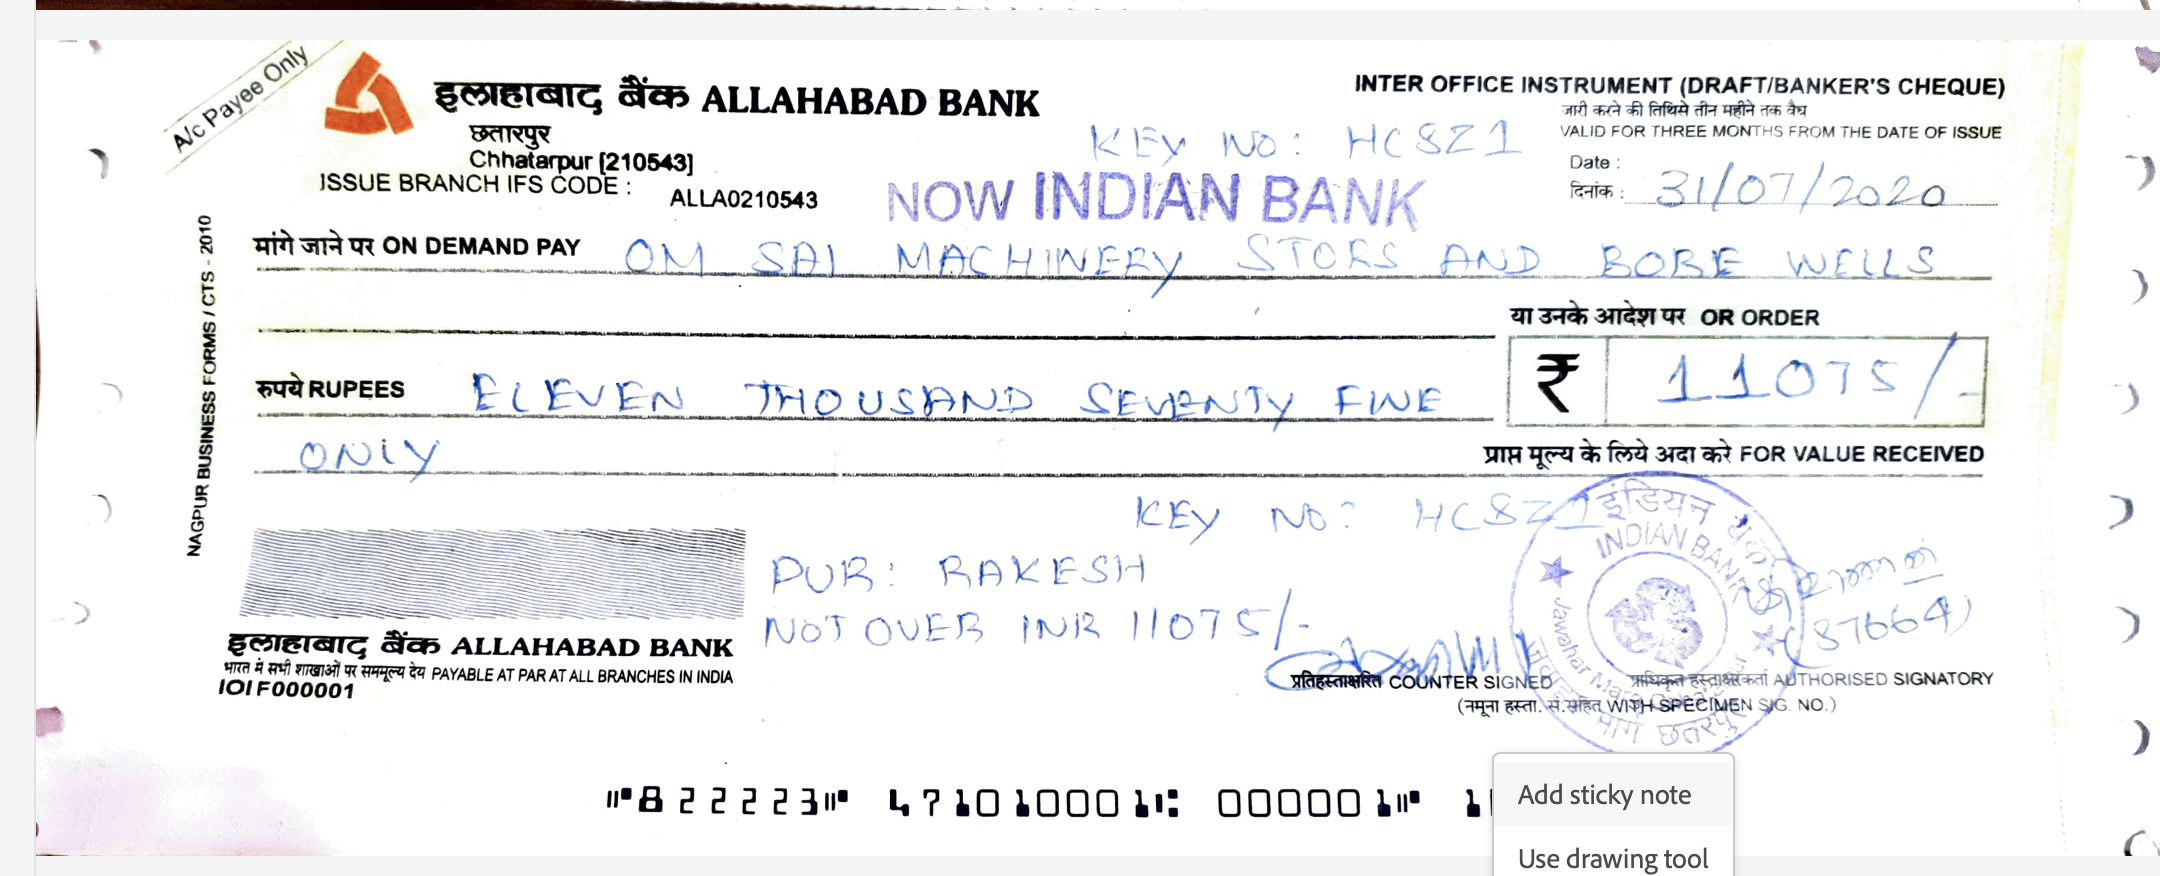 A/c Payee Only
इलाहाबाद बैंक ALLAHABAD BANK
छतारपुर
Chhatarpur [210543]
ISSUE BRANCH IFS CODE :
ALLA0210543
INTER OFFICE INSTRUMENT (DRAFT/BANKER'S CHEQUE)
जारी करने की तिथिसे तीन महीने तक वैघ
VALID FOR THREE MONTHS FROM THE DATE OF ISSUE
KEY NO: HC8Z1
Date :
दिनांक : 31/07/2020
NOW INDIAN BANK
मांगे जाने पर ON DEMAND PAY OM SAI MACHINERY STORS AND BORE WELLS
या उनके आदेश पर OR ORDER
रुपये RUPEES ELEVEN THOUSAND SEVENTY FIVE
₹ 11075/-
ONLY
प्राप्त मूल्य के लिये अदा करे FOR VALUE RECEIVED
NAGPUR BUSINESS FORMS / CTS - 2010
KEY NO: HC8Z1
PUR: RAKESH
NOT OVER INR 11075/-
इंडियन बैंक
INDIAN BANK
Jawahar Marg
छतरपुर
(37664)
इलाहाबाद बैंक ALLAHABAD BANK
भारत में सभी शाखाओं पर सममूल्य देय PAYABLE AT PAR AT ALL BRANCHES IN INDIA
IOI F000001
प्रतिहस्ताक्षरित COUNTER SIGNED
प्राधिकृत हस्ताक्षरकर्ता AUTHORISED SIGNATORY
(नमूना हस्ता. सं.सहित WITH SPECIMEN SIG. NO.)
⑈822223⑈ 471010001⑆ 000001⑈ 1
Add sticky note
Use drawing tool